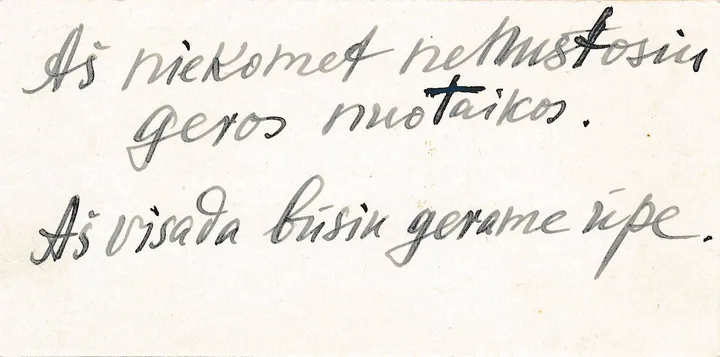 Aš niekomet nenustosiu
geros nuotaikos.
Aš visada būsiu gerame ūpe.